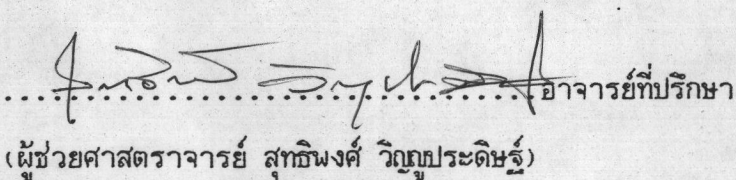 ....................................อาจารย์ที่ปรึกษา
(ผู้ช่วยศาสตราจารย์ สุทธิพงศ์ วิญญูประดิษฐ์)